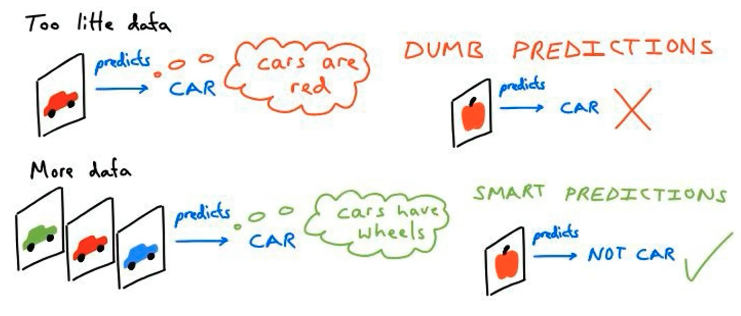 Too little data
predicts
CAR
cars are
red
DUMB PREDICTIONS
predicts
CAR
More data
predicts
CAR
cars have
wheels
SMART PREDICTIONS
predicts
NOT CAR